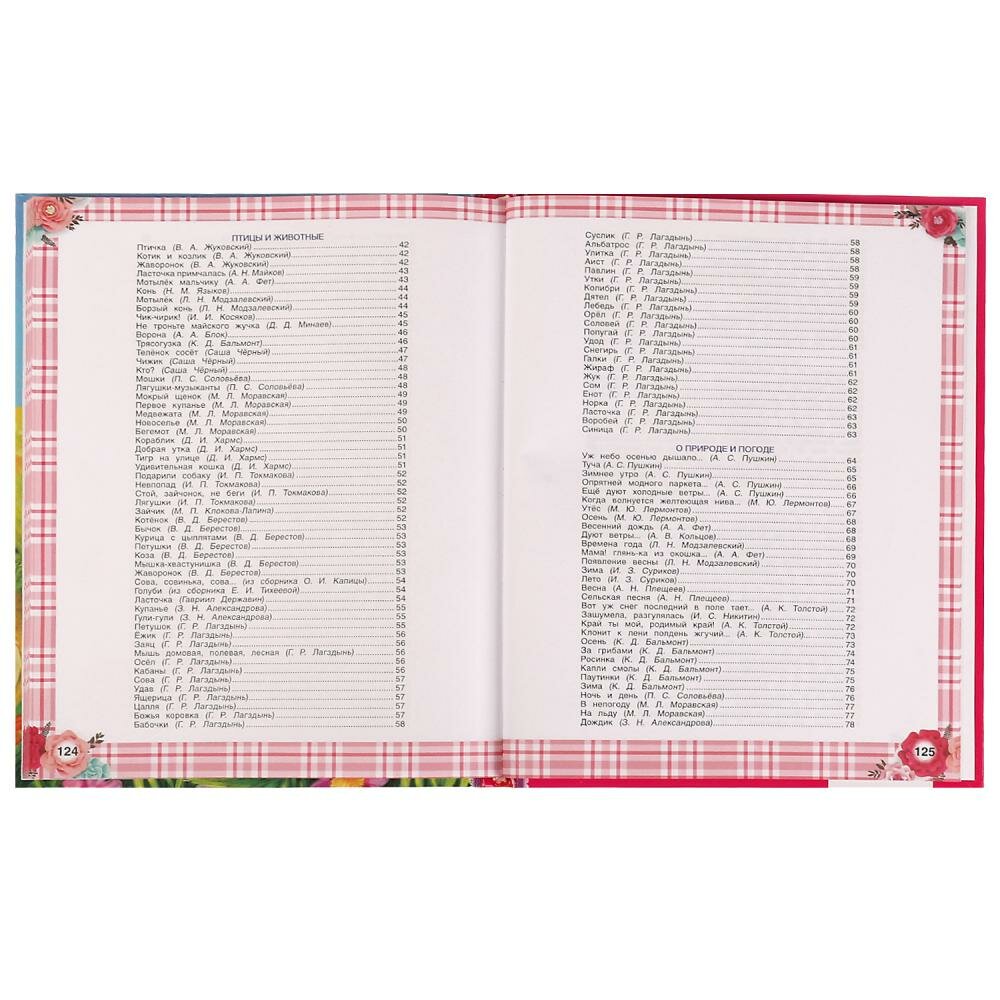 ПТИЦЫ И ЖИВОТНЫЕ
Птичка (В. А. Жуковский) 42
Котик и козлик (В. А. Жуковский) 42
Жаворонок (В. А. Жуковский) 42
Ласточка примчалась (А. Н. Майков) 43
Мотылёк мальчику (А. А. Фет) 43
Конь (Н. М. Языков) 44
Мотылёк (Л. Н. Модзалевский) 44
Борзый конь (Л. Н. Модзалевский) 44
Чик-чирик! (И. И. Косяков) 45
Не троньте майского жучка (Д. Д. Минаев) 45
Ворона (А. А. Блок) 46
Трясогузка (К. Д. Бальмонт) 46
Телёнок сосёт (Саша Чёрный) 47
Чижик (Саша Чёрный) 47
Кто? (Саша Чёрный) 48
Мошки (П. С. Соловьёва) 48
Лягушки-музыканты (П. С. Соловьёва) 48
Мокрый щенок (М. Л. Моравская) 49
Первое купанье (М. Л. Моравская) 49
Медвежата (М. Л. Моравская) 49
Новоселье (М. Л. Моравская) 50
Бегемот (М. Л. Моравская) 50
Кораблик (Д. И. Хармс) 51
Добрая утка (Д. И. Хармс) 51
Тигр на улице (Д. И. Хармс) 51
Удивительная кошка (Д. И. Хармс) 51
Подарили собаку (И. П. Токмакова) 52
Невпопад (И. П. Токмакова) 52
Стой, зайчонок, не беги (И. П. Токмакова) 52
Лягушки (И. П. Токмакова) 52
Зайчик (М. П. Клокова-Лапина) 52
Котёнок (В. Д. Берестов) 52
Бычок (В. Д. Берестов) 53
Курица с цыплятами (В. Д. Берестов) 53
Петушки (В. Д. Берестов) 53
Коза (В. Д. Берестов) 53
Мышка-хвастунишка (В. Д. Берестов) 53
Жаворонок (В. Д. Берестов) 53
Сова, совинька, сова... (из сборника О. И. Капицы) 54
Голуби (из сборника Е. И. Тихеевой) 54
Ласточка (Гавриил Державин) 54
Купанье (З. Н. Александрова) 55
Гули-гули (З. Н. Александрова) 55
Петушок (Г. Р. Лагздынь) 55
Ёжик (Г. Р. Лагздынь) 56
Заяц (Г. Р. Лагздынь) 56
Мышь домовая, полевая, лесная (Г. Р. Лагздынь) 56
Осёл (Г. Р. Лагздынь) 56
Кабаны (Г. Р. Лагздынь) 56
Сова (Г. Р. Лагздынь) 57
Удав (Г. Р. Лагздынь) 57
Ящерица (Г. Р. Лагздынь) 57
Цапля (Г. Р. Лагздынь) 57
Божья коровка (Г. Р. Лагздынь) 57
Бабочки (Г. Р. Лагздынь) 58
124
Суслик (Г. Р. Лагздынь) 58
Альбатрос (Г. Р. Лагздынь) 58
Улитка (Г. Р. Лагздынь) 58
Аист (Г. Р. Лагздынь) 58
Павлин (Г. Р. Лагздынь) 58
Утки (Г. Р. Лагздынь) 59
Колибри (Г. Р. Лагздынь) 59
Дятел (Г. Р. Лагздынь) 59
Лебедь (Г. Р. Лагздынь) 60
Орёл (Г. Р. Лагздынь) 60
Соловей (Г. Р. Лагздынь) 60
Попугай (Г. Р. Лагздынь) 60
Удод (Г. Р. Лагздынь) 61
Снегирь (Г. Р. Лагздынь) 61
Галки (Г. Р. Лагздынь) 61
Жираф (Г. Р. Лагздынь) 61
Жук (Г. Р. Лагздынь) 62
Сом (Г. Р. Лагздынь) 62
Енот (Г. Р. Лагздынь) 62
Норка (Г. Р. Лагздынь) 62
Ласточка (Г. Р. Лагздынь) 63
Воробей (Г. Р. Лагздынь) 63
Синица (Г. Р. Лагздынь) 63
О ПРИРОДЕ И ПОГОДЕ
Уж небо осенью дышало... (А. С. Пушкин) 64
Туча (А. С. Пушкин) 65
Зимнее утро (А. С. Пушкин) 65
Опрятней модного паркета... (А. С. Пушкин) 66
Ещё дуют холодные ветры... (А. С. Пушкин) 66
Когда волнуется желтеющая нива... (М. Ю. Лермонтов) 67
Утёс (М. Ю. Лермонтов) 67
Осень (М. Ю. Лермонтов) 68
Весенний дождь (А. А. Фет) 68
Дуют ветры... (А. В. Кольцов) 68
Времена года (Л. Н. Модзалевский) 69
Мама! глянь-ка из окошка... (А. А. Фет) 69
Появление весны (Л. Н. Модзалевский) 70
Зима (И. З. Суриков) 70
Лето (И. З. Суриков) 70
Весна (А. Н. Плещеев) 71
Сельская песня (А. Н. Плещеев) 71
Вот уж снег последний в поле тает... (А. К. Толстой) 72
Зашумела, разгулялась (И. С. Никитин) 72
Край ты мой, родимый край! (А. К. Толстой) 72
Клонит к лени полдень жгучий... (А. К. Толстой) 73
Осень (К. Д. Бальмонт) 73
За грибами (К. Д. Бальмонт) 74
Росинка (К. Д. Бальмонт) 74
Капли смолы (К. Д. Бальмонт) 75
Паутинки (К. Д. Бальмонт) 75
Зима (К. Д. Бальмонт) 76
Ночь и день (П. С. Соловьёва) 76
В непогоду (М. Л. Моравская) 77
На льду (М. Л. Моравская) 77
Дождик (З. Н. Александрова) 78
125